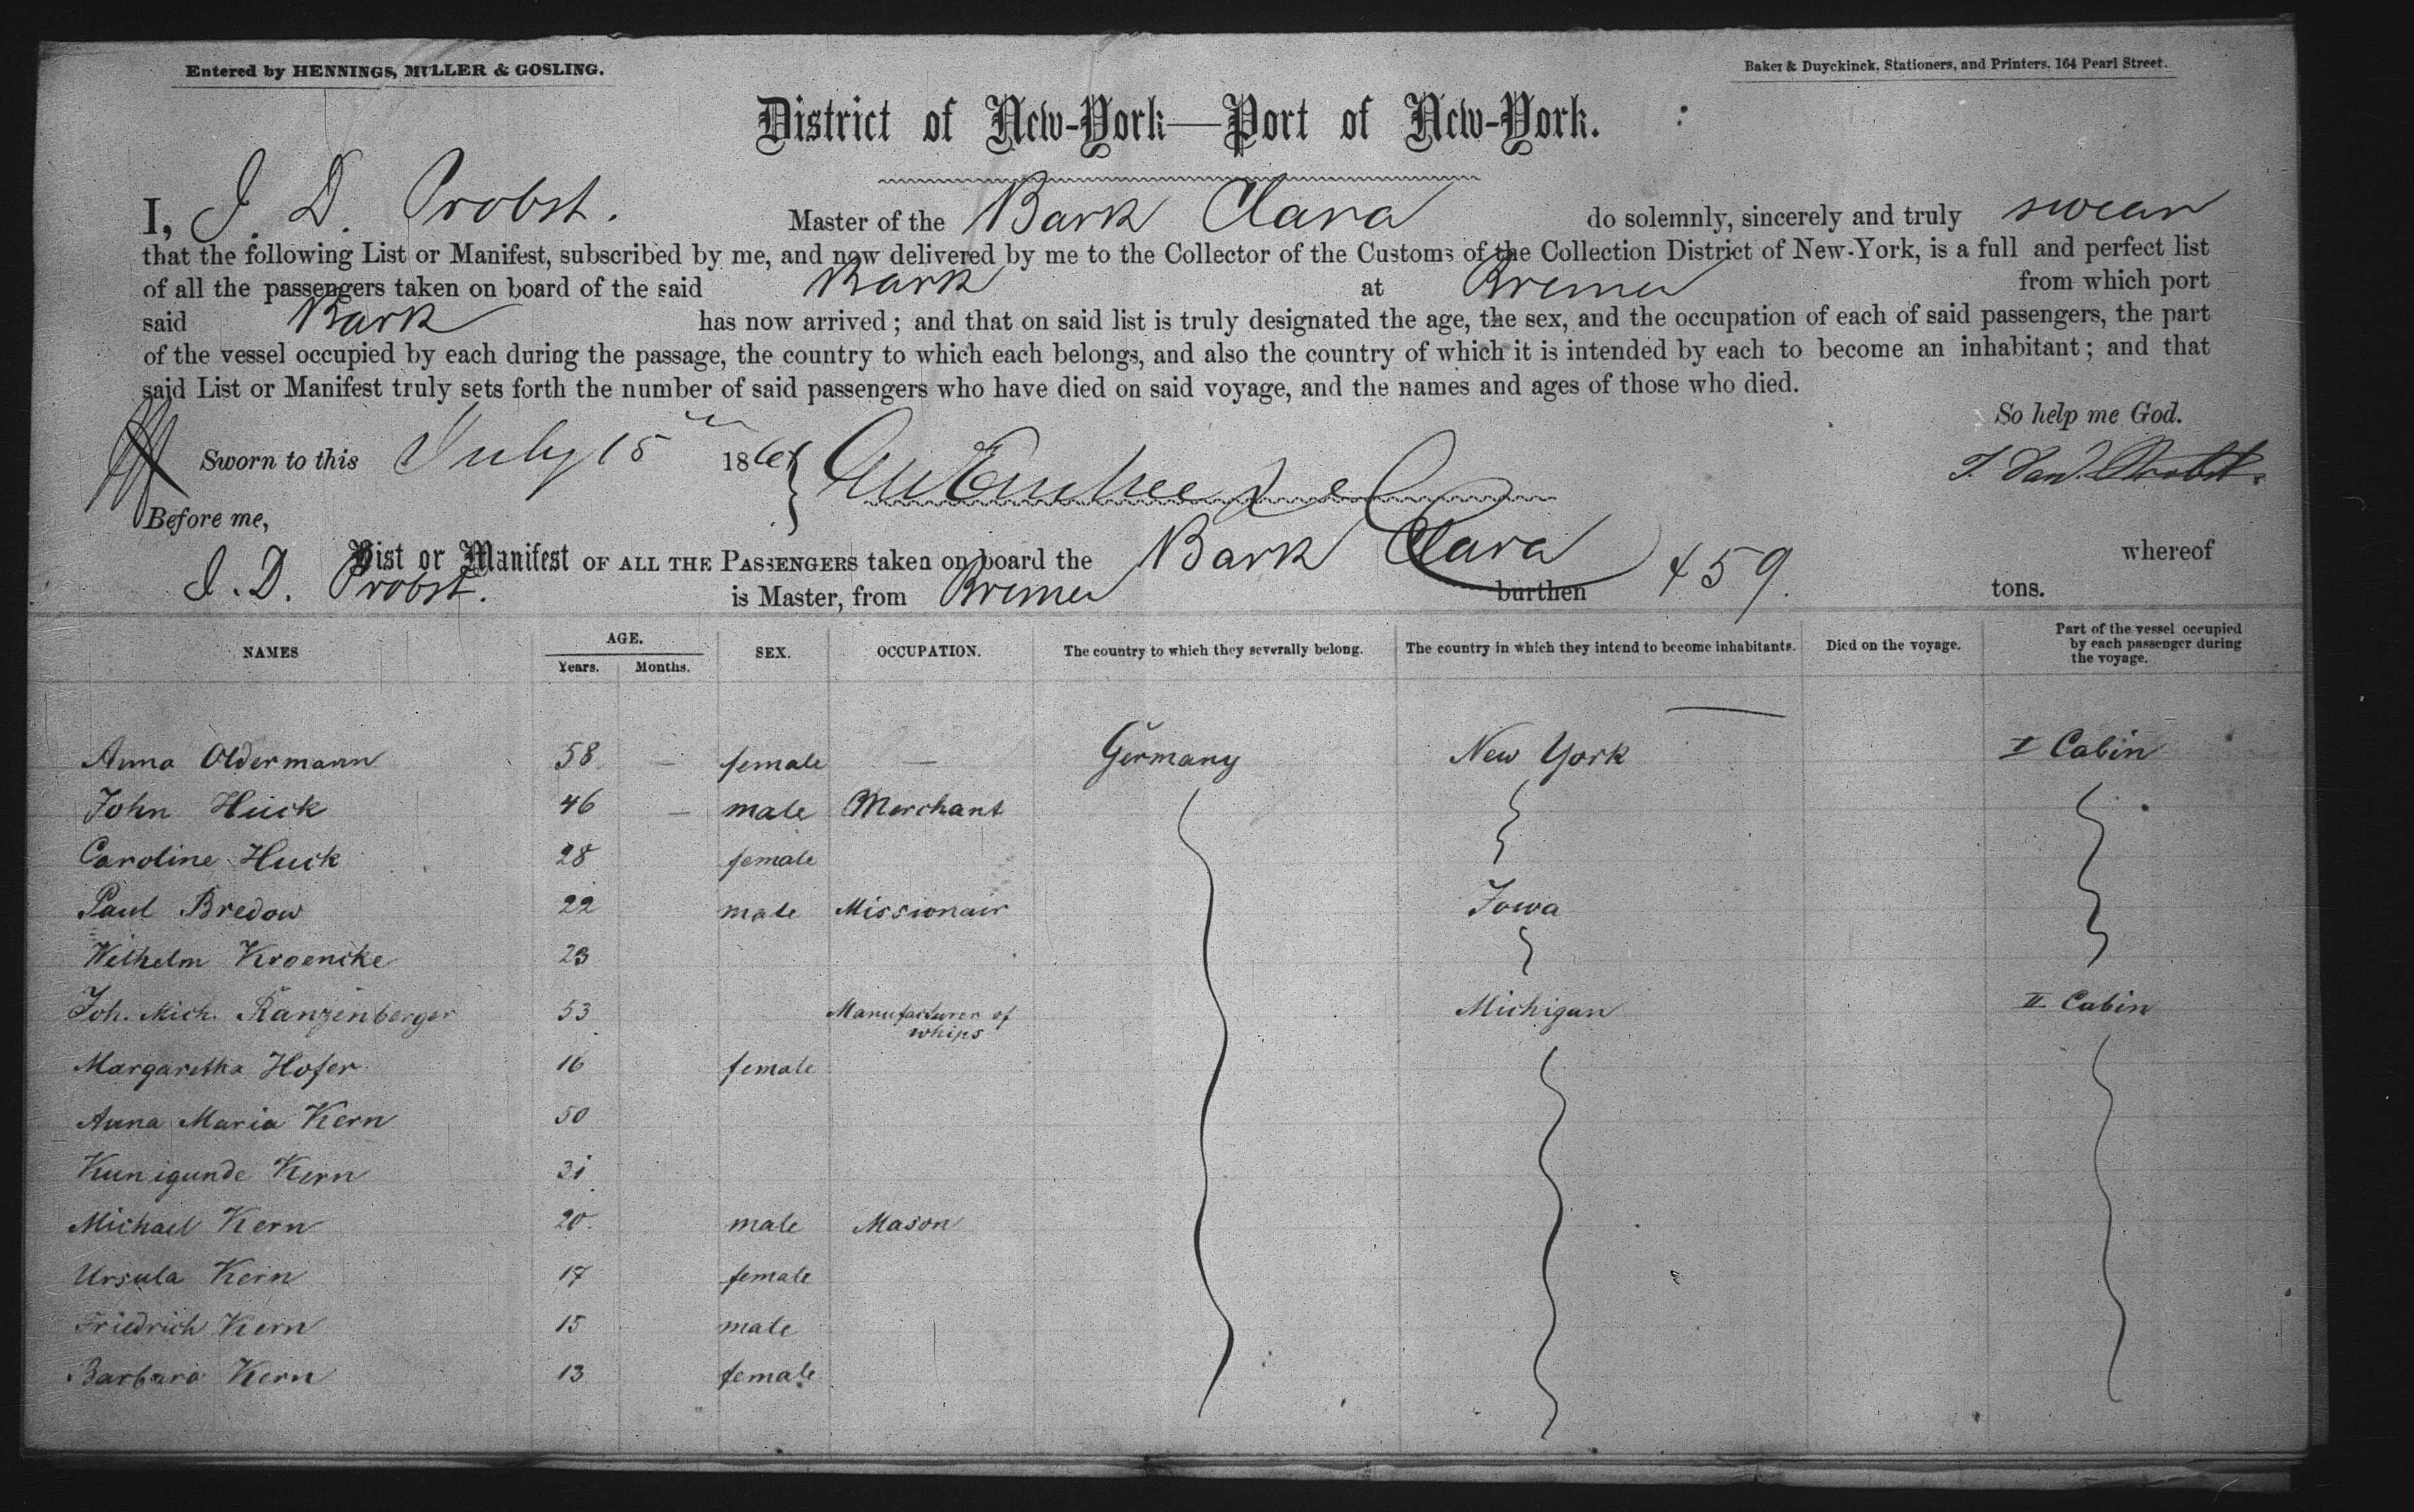 Entered by HENNINGS, MULLER & GOSLING.
Baker & Duyckinck, Stationers, and Printers, 164 Pearl Street.
District of New-York—Port of New-York.
I, J. D. Probst. Master of the Bark Clara do solemnly, sincerely and truly swear
that the following List or Manifest, subscribed by me, and now delivered by me to the Collector of the Customs of the Collection District of New-York, is a full and perfect list
of all the passengers taken on board of the said Bark at Bremen from which port
said Bark has now arrived; and that on said list is truly designated the age, the sex, and the occupation of each of said passengers, the part
of the vessel occupied by each during the passage, the country to which each belongs, and also the country of which it is intended by each to become an inhabitant; and that
said List or Manifest truly sets forth the number of said passengers who have died on said voyage, and the names and ages of those who died.
So help me God.
Sworn to this July 15 186
Before me,
List or Manifest OF ALL THE PASSENGERS taken on board the Bark Clara whereof
J. D. Probst. is Master, from Bremen burthen 459. tons.
NAMES AGE. Years. Months. SEX. OCCUPATION. The country to which they severally belong. The country in which they intend to become inhabitants. Died on the voyage. Part of the vessel occupied by each passenger during the voyage.
Anna Oldermann 58 — female — Germany New York I Cabin
John Huck 46 — male Merchant
Caroline Huck 28 female
Paul Bredow 22 male Missionair Iowa
Wilhelm Kroencke 23
Joh. Mich. Ranzenberger 53 Manufacturer of whips Michigan II Cabin
Margaretha Hofer 16 female
Anna Maria Kern 50
Kunigunde Kern 31
Michael Kern 20 male Mason
Ursula Kern 17 female
Friedrich Kern 15 male
Barbara Kern 13 female